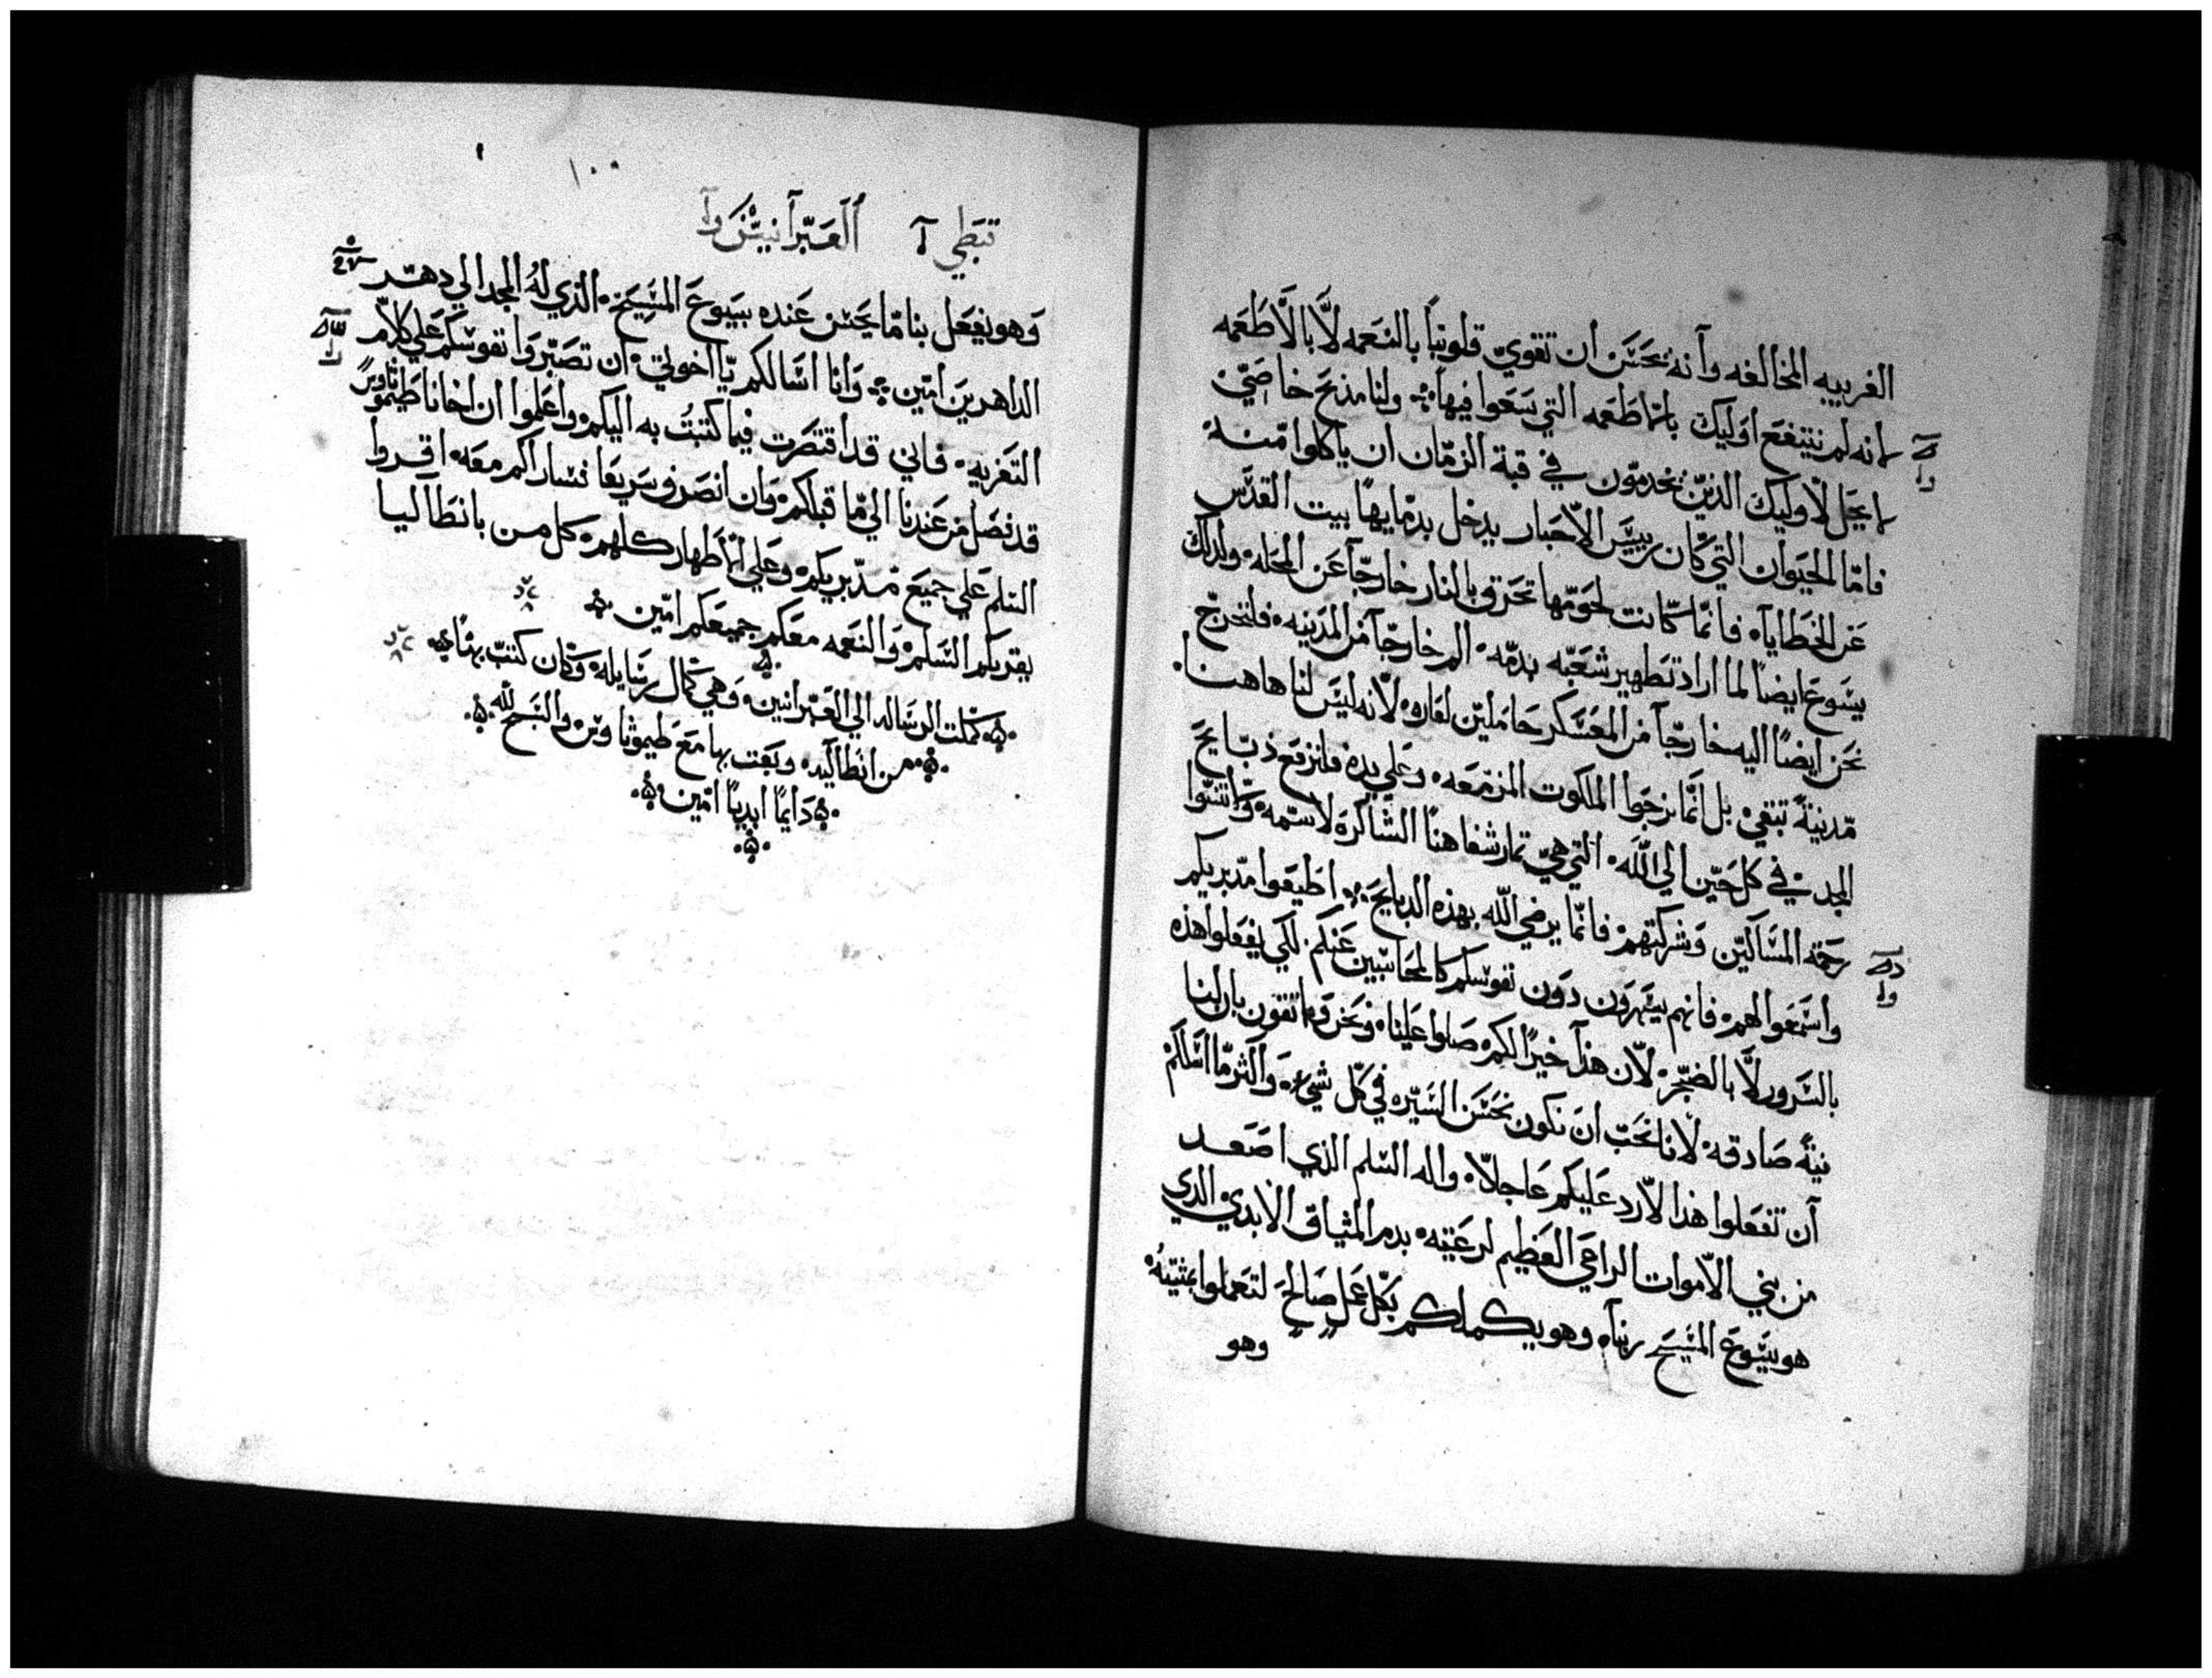 الغريبه المخالفه وانه يحسن ان تقوي قلوبنا بالنعمه لا بالاطعمه
لانه لم ينتفع اوليك بالاطعمه التي سعوا فيها ولنا مذبح خاصي
لا يحل لاوليك الذين يخدمون في قبة الزمان ان ياكلوا منه
فاما الحيوان التي كان رييس الاحبار يدخل بدمايها بيت القدس
عن الخطايا فانما كانت لحومها تحرق بالنار خارجا عن المحله ولذلك
يسوع ايضا لما اراد تطهير شعبه بدمه الم خارجا من المدينه فلنخرج
نحن ايضا اليه خارجا من المعسكر حاملين لعاره لانه ليس لنا هاهنا
مدينة تبقي بل انما نرجوا الملكوت المزمعه وعلي يده فلنرفع ذبايح
المجد في كل حين الي الله التي هي تمار شفاهنا الشاكرة لاسمه ولا تنسوا
رحمة المساكين وشركتهم فانما يرضي الله بهذه الدبايح اطيعوا مدبريكم
واسمعوا لهم فانهم يسهرون دون نفوسكم كالمحاسبين عنكم لكي يفعلوا هذه
بالسرور لا بالضجر لان هذا خيرا لكم صلوا علينا ونحن واتقون بان لنا
نية صادقه لانا نحب ان نكون نحسن السيره في كل شيء واكثر ما اسلكم
ان تفعلوا هذا لارد عليكم عاجلا واله السلم الذي اصعد
من بني الاموات الراعي العظيم لرعيته بدم الميثاق الابدي الدي
هو يسوع المسيح ربنا وهو يكملكم بكل عمل صالح لتعملوا بمشيته
وهو
١٠٠
قبطي العبرانيين
وهو يفعل بنا ما يحسن عنده بيسوع المسيح الذي له المجد الي دهر
الداهرين امين وانا اسالكم يا اخوتي ان تصبروا نفوسكم علي كلام
التعزيه فاني قد اقتصرت فيما كتبت به اليكم واعلموا ان اخانا طيموتاوس
قد فصل من عندنا الي ما قبلكم وان انصرف سريعا فسار اكم معه اقروا
السلم علي جميع مدبريكم وعلي الاطهار كلهم كل من بانطاليا
يقريكم السلم والنعمه معكم جميعكم امين
كملت الرساله الي العبرانيين وهي كمال رسايله وكان كتب بها
من انطاليه وبعت بها مع طيموتاوس والسبح لله
دايما ابديا امين